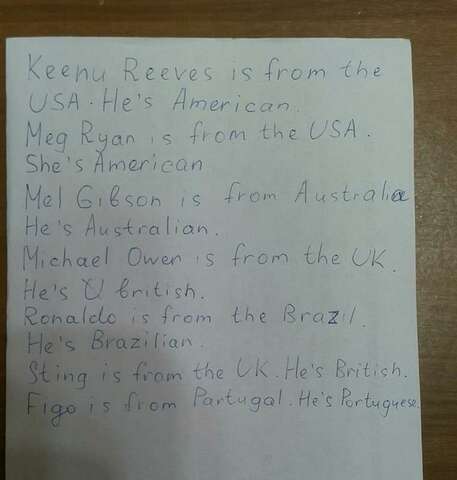 Keenu Reeves is from the
USA. He's American.
Meg Ryan is from the USA.
She's American
Mel Gibson is from Australia
He's Australian.
Michael Owen is from the UK.
He's British.
Ronaldo is from the Brazil.
He's Brazilian.
Sting is from the UK. He's British.
Figo is from Partugal. He's Portuguese.